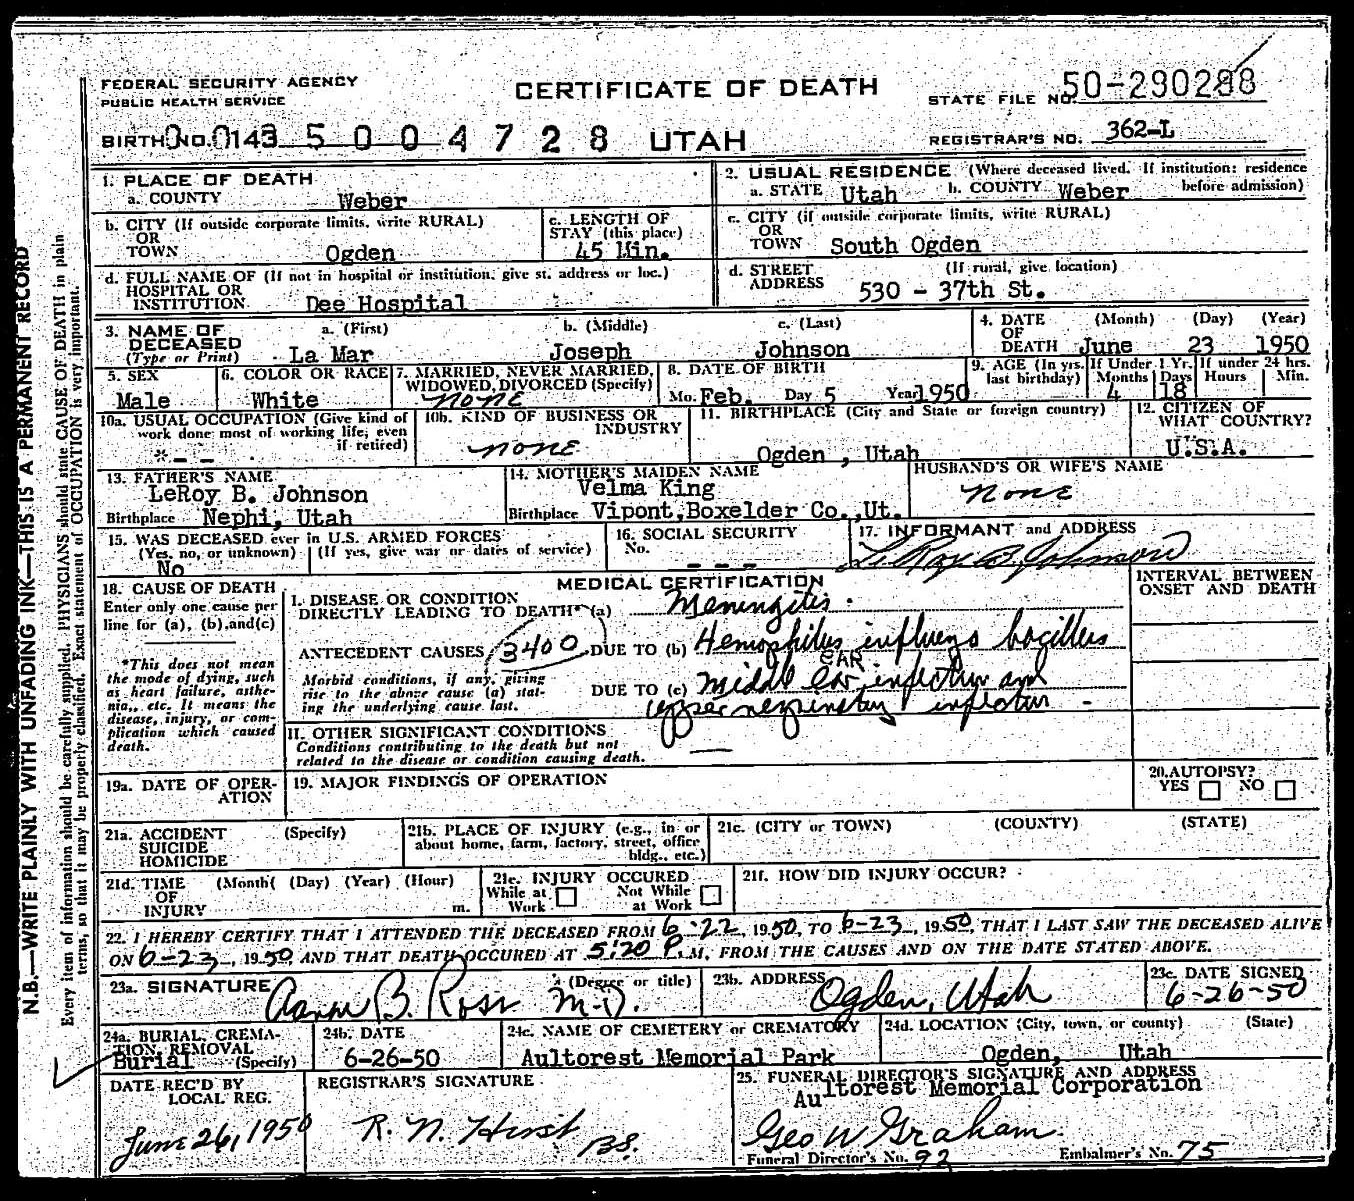 FEDERAL SECURITY AGENCY
PUBLIC HEALTH SERVICE
CERTIFICATE OF DEATH
STATE FILE NO. 50-290288
BIRTH NO. 0143 5 0 0 4 7 2 8 UTAH
REGISTRAR'S NO. 362-L
1. PLACE OF DEATH
a. COUNTY Weber
2. USUAL RESIDENCE (Where deceased lived. If institution: residence before admission)
a. STATE Utah b. COUNTY Weber
b. CITY (If outside corporate limits, write RURAL)
OR
TOWN Ogden
c. LENGTH OF
STAY (this place)
45 Min.
c. CITY (if outside corporate limits, write RURAL)
OR
TOWN South Ogden
d. FULL NAME OF (If not in hospital or institution, give st. address or loc.)
HOSPITAL OR
INSTITUTION Dee Hospital
d. STREET (If rural, give location)
ADDRESS 530 - 37th St.
3. NAME OF
DECEASED
(Type or Print)
a. (First) b. (Middle) c. (Last)
La Mar Joseph Johnson
4. DATE
OF
DEATH
(Month) (Day) (Year)
June 23 1950
5. SEX
Male
6. COLOR OR RACE
White
7. MARRIED, NEVER MARRIED,
WIDOWED, DIVORCED (Specify)
none
8. DATE OF BIRTH
Mo. Feb. Day 5 Year 1950
9. AGE (In yrs. last birthday)
If Under 1 Yr. If under 24 hrs.
Months Days Hours Min.
4 18
10a. USUAL OCCUPATION (Give kind of
work done most of working life, even
if retired)
10b. KIND OF BUSINESS OR
INDUSTRY
none
11. BIRTHPLACE (City and State or foreign country)
Ogden , Utah
12. CITIZEN OF
WHAT COUNTRY?
U.S.A.
13. FATHER'S NAME
LeRoy B. Johnson
Birthplace Nephi, Utah
14. MOTHER'S MAIDEN NAME
Velma King
Birthplace Vipont, Boxelder Co., Ut.
HUSBAND'S OR WIFE'S NAME
none
15. WAS DECEASED ever in U.S. ARMED FORCES
(Yes, no, or unknown) (If yes, give war or dates of service)
No
16. SOCIAL SECURITY
No. - - -
17. INFORMANT and ADDRESS
LeRoy B. Johnson
18. CAUSE OF DEATH
Enter only one cause per
line for (a), (b), and (c)
*This does not mean
the mode of dying, such
as heart failure, asthe-
nia, etc. It means the
disease, injury, or com-
plication which caused
death.
MEDICAL CERTIFICATION
INTERVAL BETWEEN
ONSET AND DEATH
I. DISEASE OR CONDITION
DIRECTLY LEADING TO DEATH* (a) Meningitis.
ANTECEDENT CAUSES 3400 DUE TO (b) Hemophilus influenza bacillus
Morbid conditions, if any, giving
rise to the above cause (a) stat-
ing the underlying cause last.
EAR
DUE TO (c) Middle ear infection and
upper respiratory infection -
II. OTHER SIGNIFICANT CONDITIONS
Conditions contributing to the death but not
related to the disease or condition causing death.
19a. DATE OF OPER-
ATION
19. MAJOR FINDINGS OF OPERATION
20. AUTOPSY?
YES NO
21a. ACCIDENT (Specify)
SUICIDE
HOMICIDE
21b. PLACE OF INJURY (e.g., in or
about home, farm, factory, street, office
bldg., etc.)
21c. (CITY or TOWN) (COUNTY) (STATE)
21d. TIME (Month) (Day) (Year) (Hour)
OF
INJURY m.
21e. INJURY OCCURED
While at Work Not While at Work
21f. HOW DID INJURY OCCUR?
22. I HEREBY CERTIFY THAT I ATTENDED THE DECEASED FROM 6-22, 1950, TO 6-23, 1950, THAT I LAST SAW THE DECEASED ALIVE
ON 6-23, 1950 AND THAT DEATH OCCURED AT 5:20 P. M, FROM THE CAUSES AND ON THE DATE STATED ABOVE.
23a. SIGNATURE (Degree or title)
Aaron B. Ross M.D.
23b. ADDRESS
Ogden, Utah
23c. DATE SIGNED
6-26-50
24a. BURIAL, CREMA-
TION, REMOVAL
Burial (Specify)
24b. DATE
6-26-50
24c. NAME OF CEMETERY or CREMATORY
Aultorest Memorial Park
24d. LOCATION (City, town, or county) (State)
Ogden, Utah
DATE REC'D BY
LOCAL REG.
June 26, 1950
REGISTRAR'S SIGNATURE
R. N. Hirst
BS.
25. FUNERAL DIRECTOR'S SIGNATURE AND ADDRESS
Aultorest Memorial Corporation
Geo W Graham.
Funeral Director's No. 92 Embalmer's No. 75
N.B.—WRITE PLAINLY WITH UNFADING INK—THIS IS A PERMANENT RECORD
Every item of information should be carefully supplied. PHYSICIANS should state CAUSE OF DEATH in plain
terms, so that it may be properly classified. Exact statement of OCCUPATION is very important.